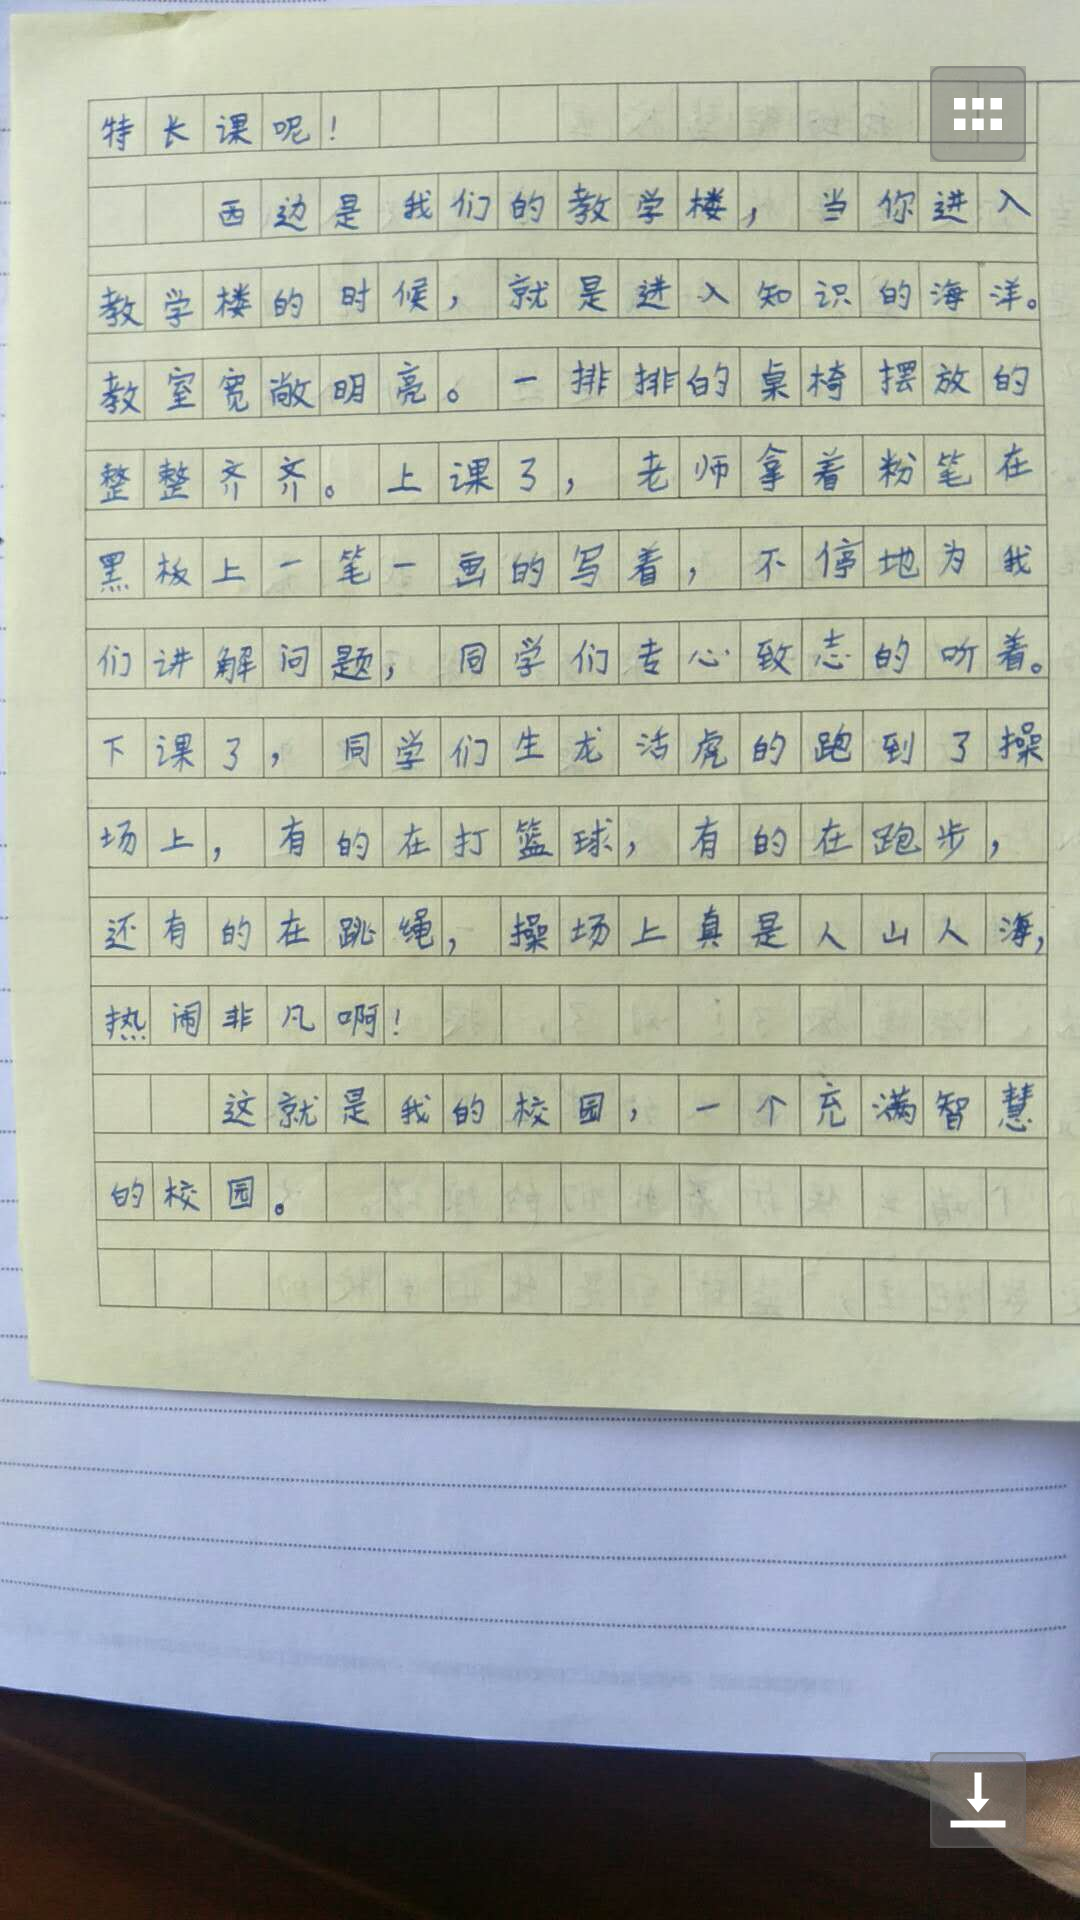 特长课呢！
西边是我们的教学楼，当你进入
教学楼的时候，就是进入知识的海洋。
教室宽敞明亮。一排排的桌椅摆放的
整整齐齐。上课了，老师拿着粉笔在
黑板上一笔一画的写着，不停地为我
们讲解问题，同学们专心致志的听着。
下课了，同学们生龙活虎的跑到了操
场上，有的在打篮球，有的在跑步，
还有的在跳绳，操场上真是人山人海，
热闹非凡啊！
这就是我的校园，一个充满智慧
的校园。